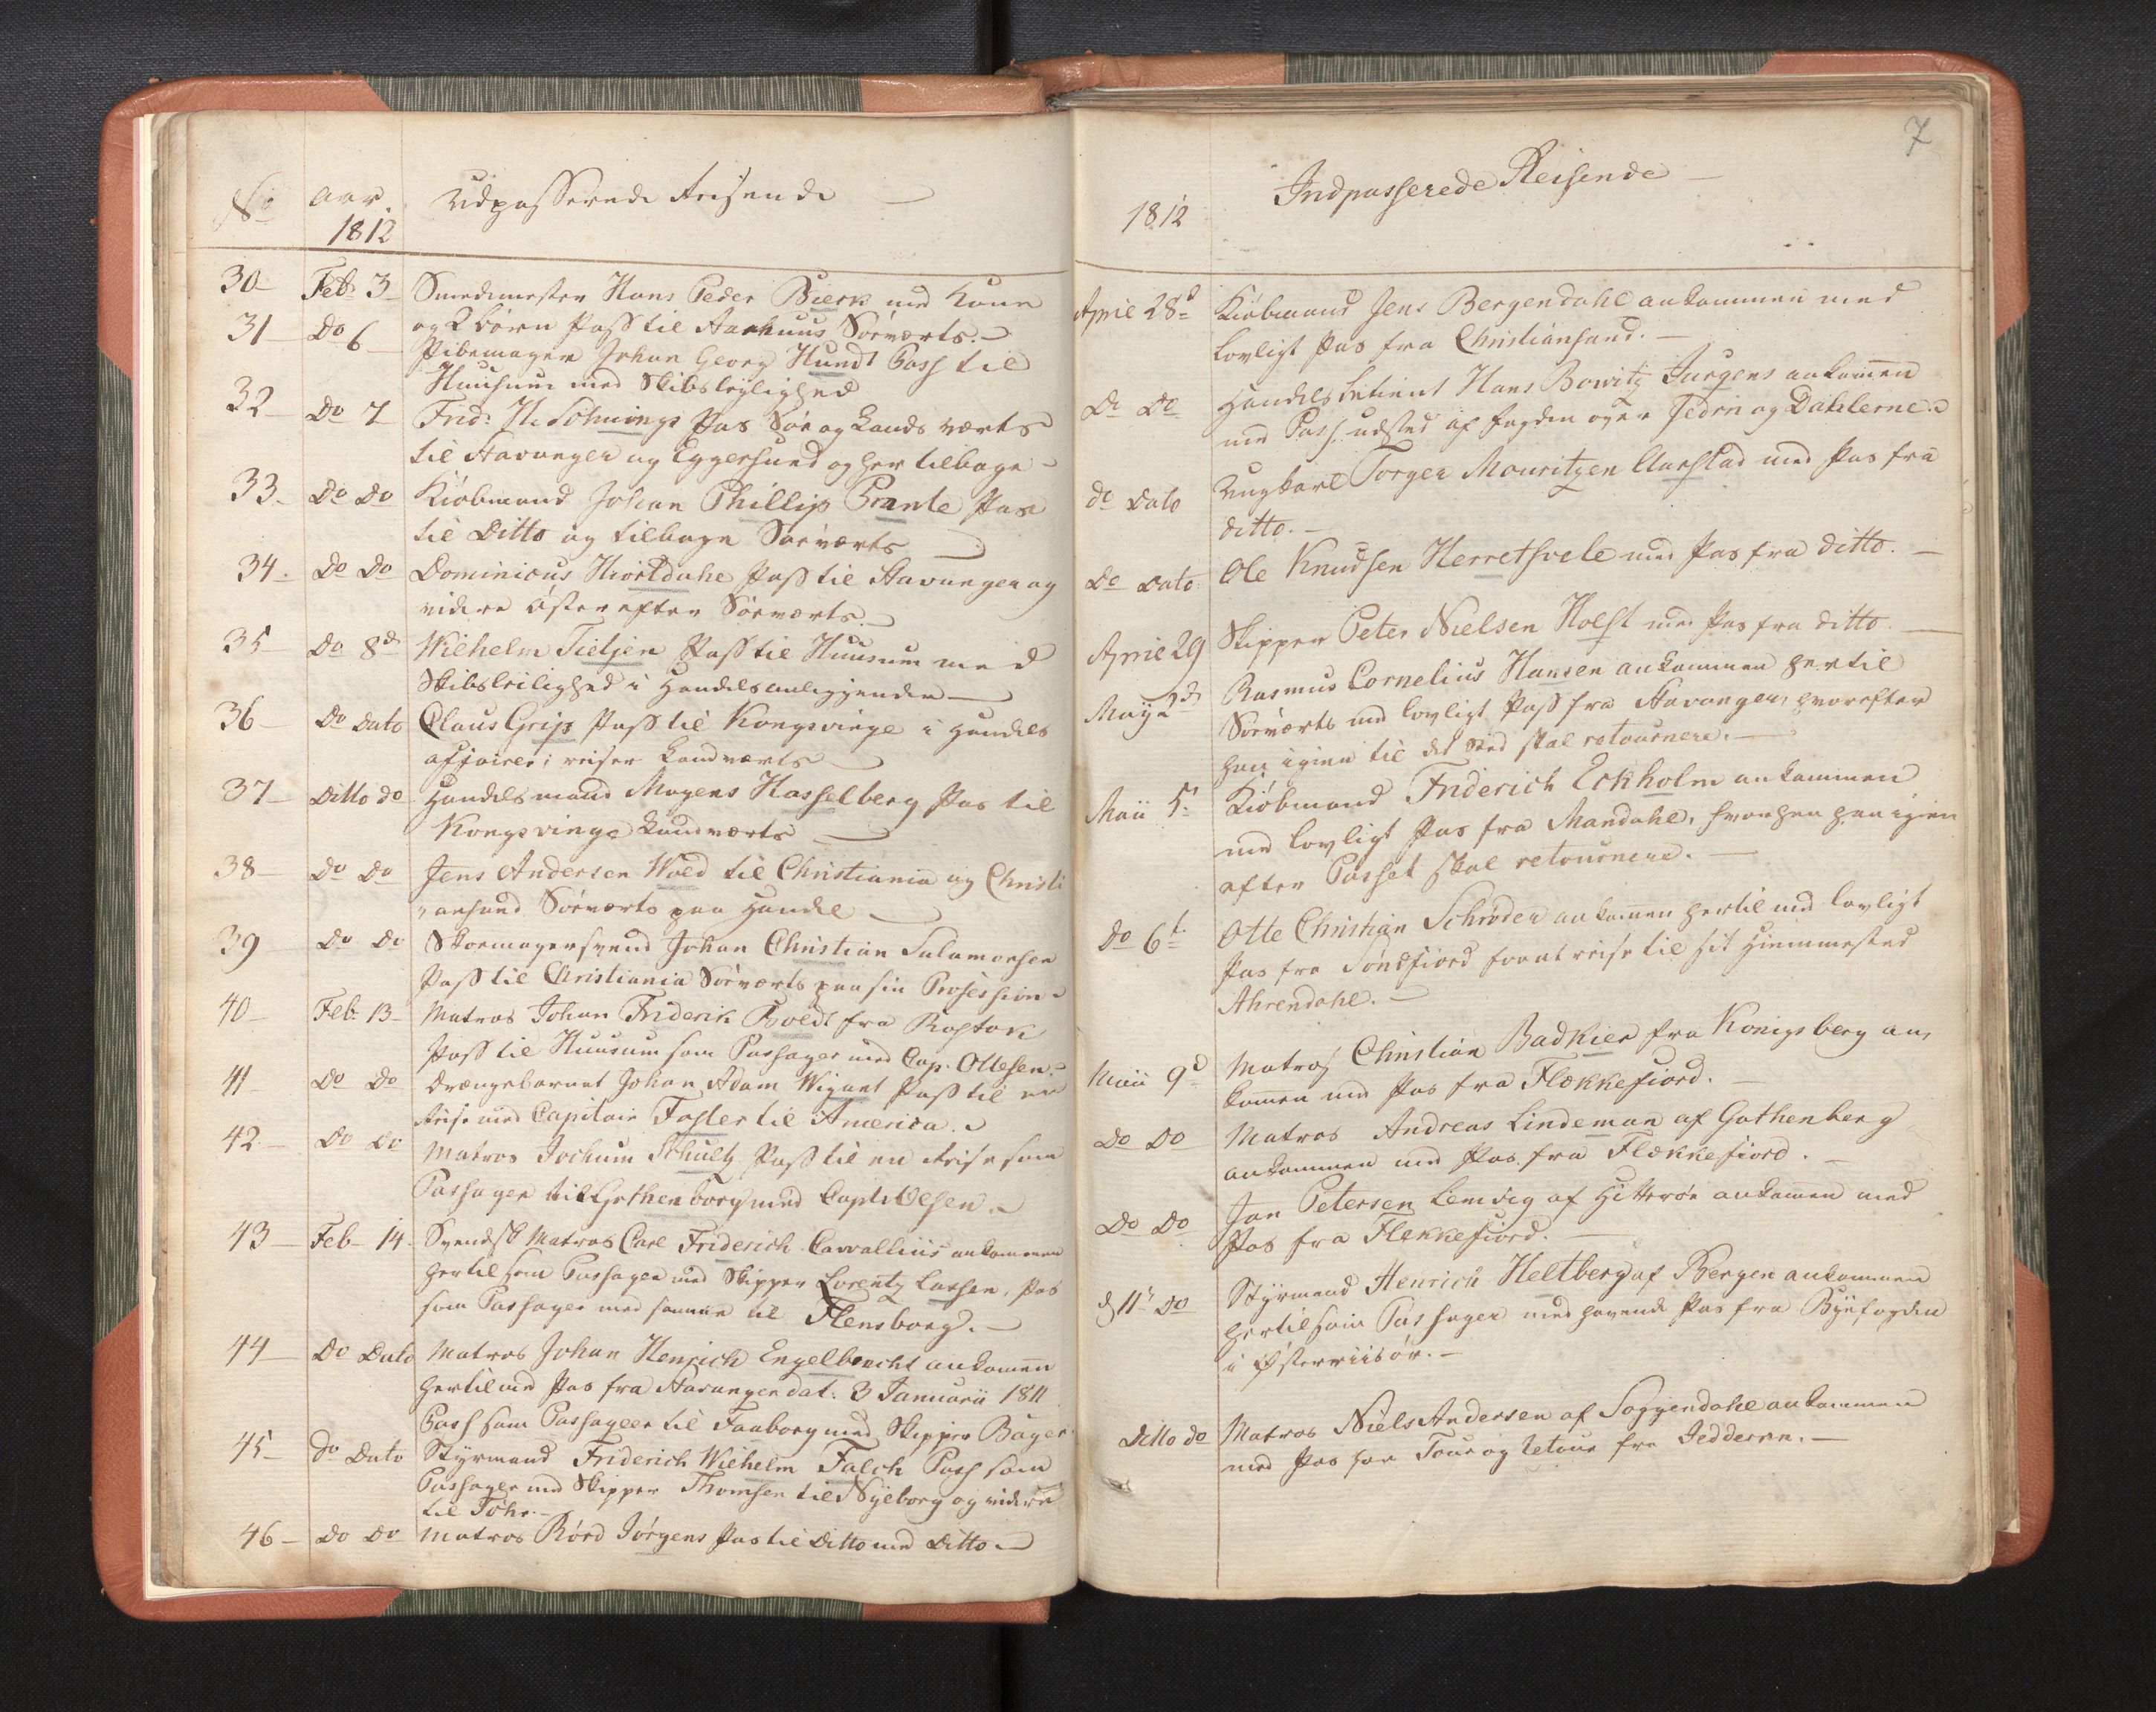 No Aar Udpasserede Reisende
1812
30 Feb 3 Smedemester Hans Peder Bierk med Kone
og 2 børn Pass til Aarhuus Søeværts.
31 Do 6 Pibemager Johan Georg Hundt Pass til
Huusum med Skibsleylighed
32 Do 7 Frid: H. Schwings Pas Søe og Lands værts
til Stavanger og Eggersund og her tilbage
33 Do Do Kiøbmand Johan Phillip Brante Pas
til Ditto og tilbage Søeværts
34 Do Do Dominicus Hiortdahl Pass til Stavanger og
videre Øster efter Søeværts
35 Do 8d Wilhelm Tietjen Pass til Huusum med
Skibsleilighed i Handels anliggender
36 Do Dato Claus Grip Pass til Kongsvinge i Handels
affairer; reiser Landværts
37 Ditto do Handelsmand Mogens Hasselberg Pas til
Kongsvinge Landværts
38 Do Do Jens Andersen Wold til Christiania og Christi
ansund Søeværts paa Handel
39 Do Do Skoemagersvend Johan Christian Salamonsen
Pass til Christiania Søeværts paa sin Profession
40 Feb 13 Matros Johan Friderik Boldt fra Rostok
Pass til Huusum som Passager med Cap. Ottesen.
41 Do Do Drængebarnet Johan Adam Wigant Pass til en
Reise med Capitain Foster til America.
42 Do Do Matros Jochum Schultz Pass til en Reise som
Passager til Gothenborg med Capt. Olsen.
43 Feb 14 Svendsk Matros Carl Friderich Cavallius ankommen
hertil som Passager med Skipper Lorentz Lassen, Pas
som Passager med samme til Flensborg.
44 Do Dato Matros Johan Henrich Engelbrecht ankommen
hertil med Pas fra Stavanger dat: 3 Januarii 1811
Pass som Passageer til Faaborg med Skipper Bager
45 do Dato Styrmand Friderich Wilhelm Falch Pass som
Passager med Skipper Thomsen til Nyeborg og videre
til Föhr.
46 Do Do Matros Rörd Jørgens Pas til Ditto med Ditto
7
Indpasserede Reisende
1812
Aprie 28d Kiøbmand Jens Bergendahl ankommen med
lovligt Pas fra Christiansand.
Do Do Handels betient Hans Bowitz Jurgens ankommen
med Pass udsted af fogden over Jedrin og Dahlerne.
do Dato Ungkarl Torger Mouritzen Aarstad med Pas fra
ditto.
Do Dato Ole Knudsen Herrethvele med Pas fra ditto.
Aprie 29 Skipper Peter Nielsen Holst med Pas fra ditto
May 2d Rasmus Cornelius Hansen ankommen hertil
Søeværts med lovligt Pass fra Stavanger, hvorefter
han igien til det Sted skal retournere.
Maii 5 Kiøbmand Friderich Eckholm ankommen
med lovligt Pas fra Mandahl, hvorhen han igien
efter Passet skal retournere.
Do 6t Otte Christian Schrøder ankommen hertil med lovligt
Pas fra Søndfiord for at reise til sit Hiemmested
Ahrendahl.
Maii 9d Matros Christian Badkier fra Konigsberg an,
kommen med Pas fra Flekkefiord.
Do Do Matros Andreas Lindeman af Gothenberg
ankommen med Pas fra Flekkefiord.
Do Do Jan Petersen Lemvig af Hitterøe ankommen med
Pas fra Flekkefiord.
d 11 Do Styrmand Henrich Heltberg af Bergen ankommen
hertil som Passager med havende Pas fra Byefogden
i Østerriisøe.
Ditto do Matros Niels Andersen af Soggendahl ankommen
med Pas for Tour og Retour fra Jedderen.